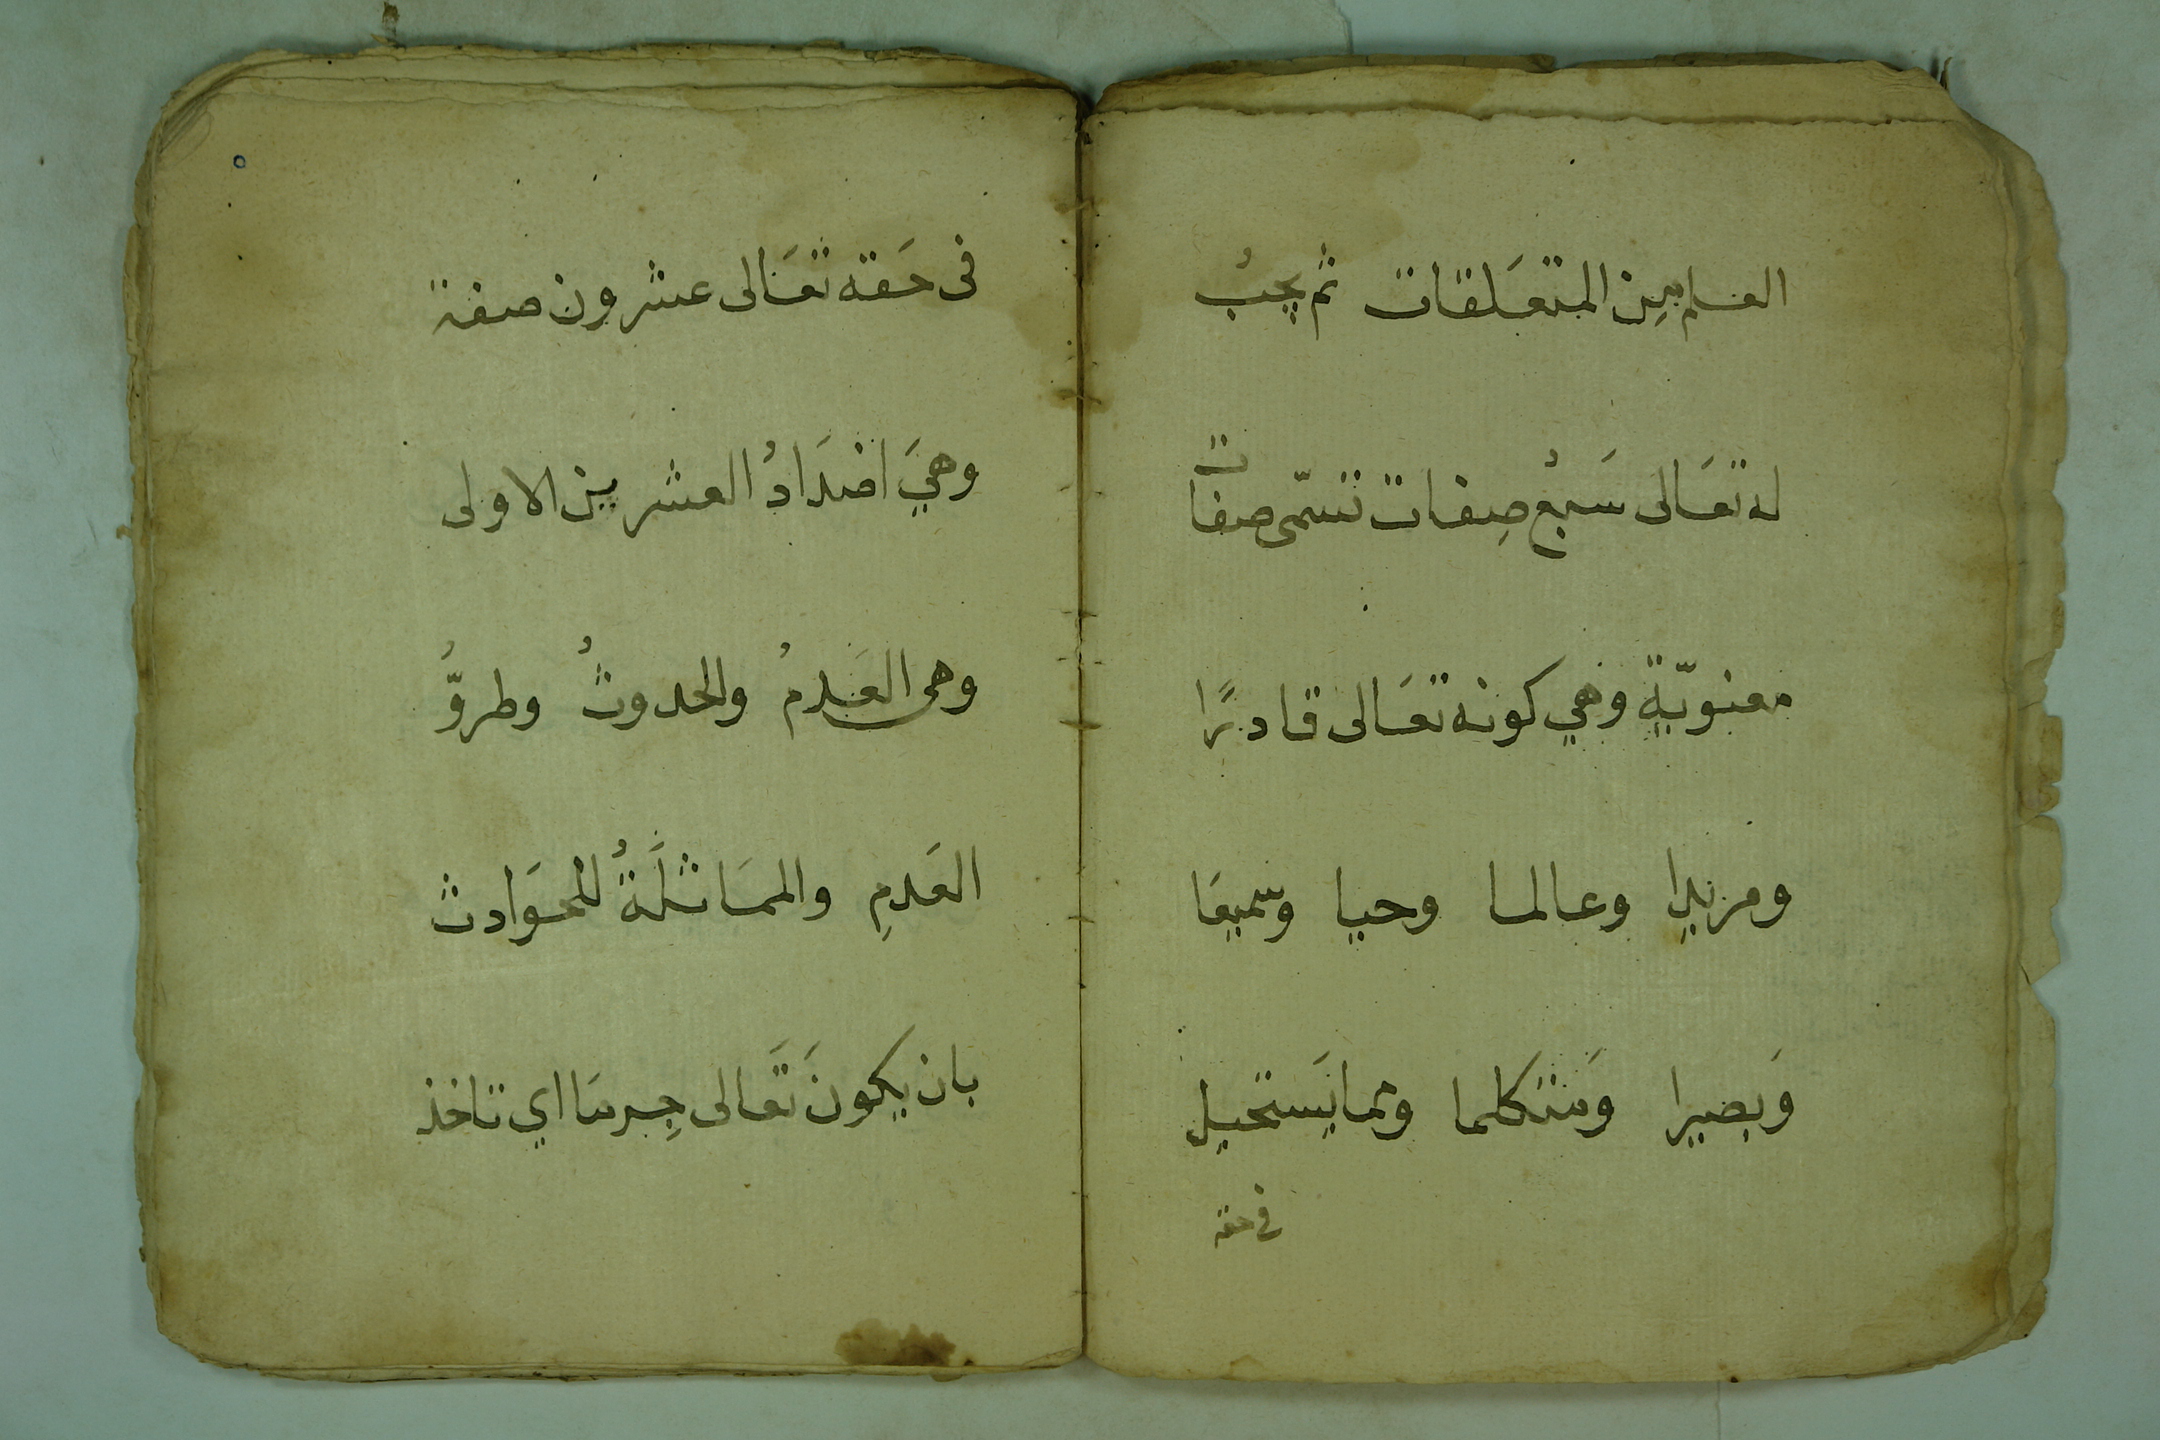 العلم بين المتعَلقات ثم يجبُ
له تعَالى سَبعُ صِفات تسمّى صفات
معنويّةٍ وَهي كونه تعَالى قادرًا
ومريدِا وعالما وحيا وَسَميعَا
وَبصيرا وَمتكلما ومما يَستحيل
في حقه
فى حَقه تعَالى عشرون صفة
وهيَ اضدَادُ العشرين الاولى
وهى العَدمُ والحدوثُ وطروُّ
العَدمِ والممَاثلَةُ للحوَادث
بان يكونَ تَعَالى جِرمَا اي تاخذ